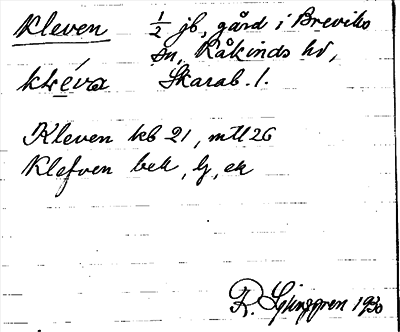 Kleven 1/2 jb, gård i Breviks
sn, Kåkinds hd,
kléva Skarab. l.
Kleven kb 21, mtl 26
Klefven bek, lj, ek
R. Ljunggren 1930